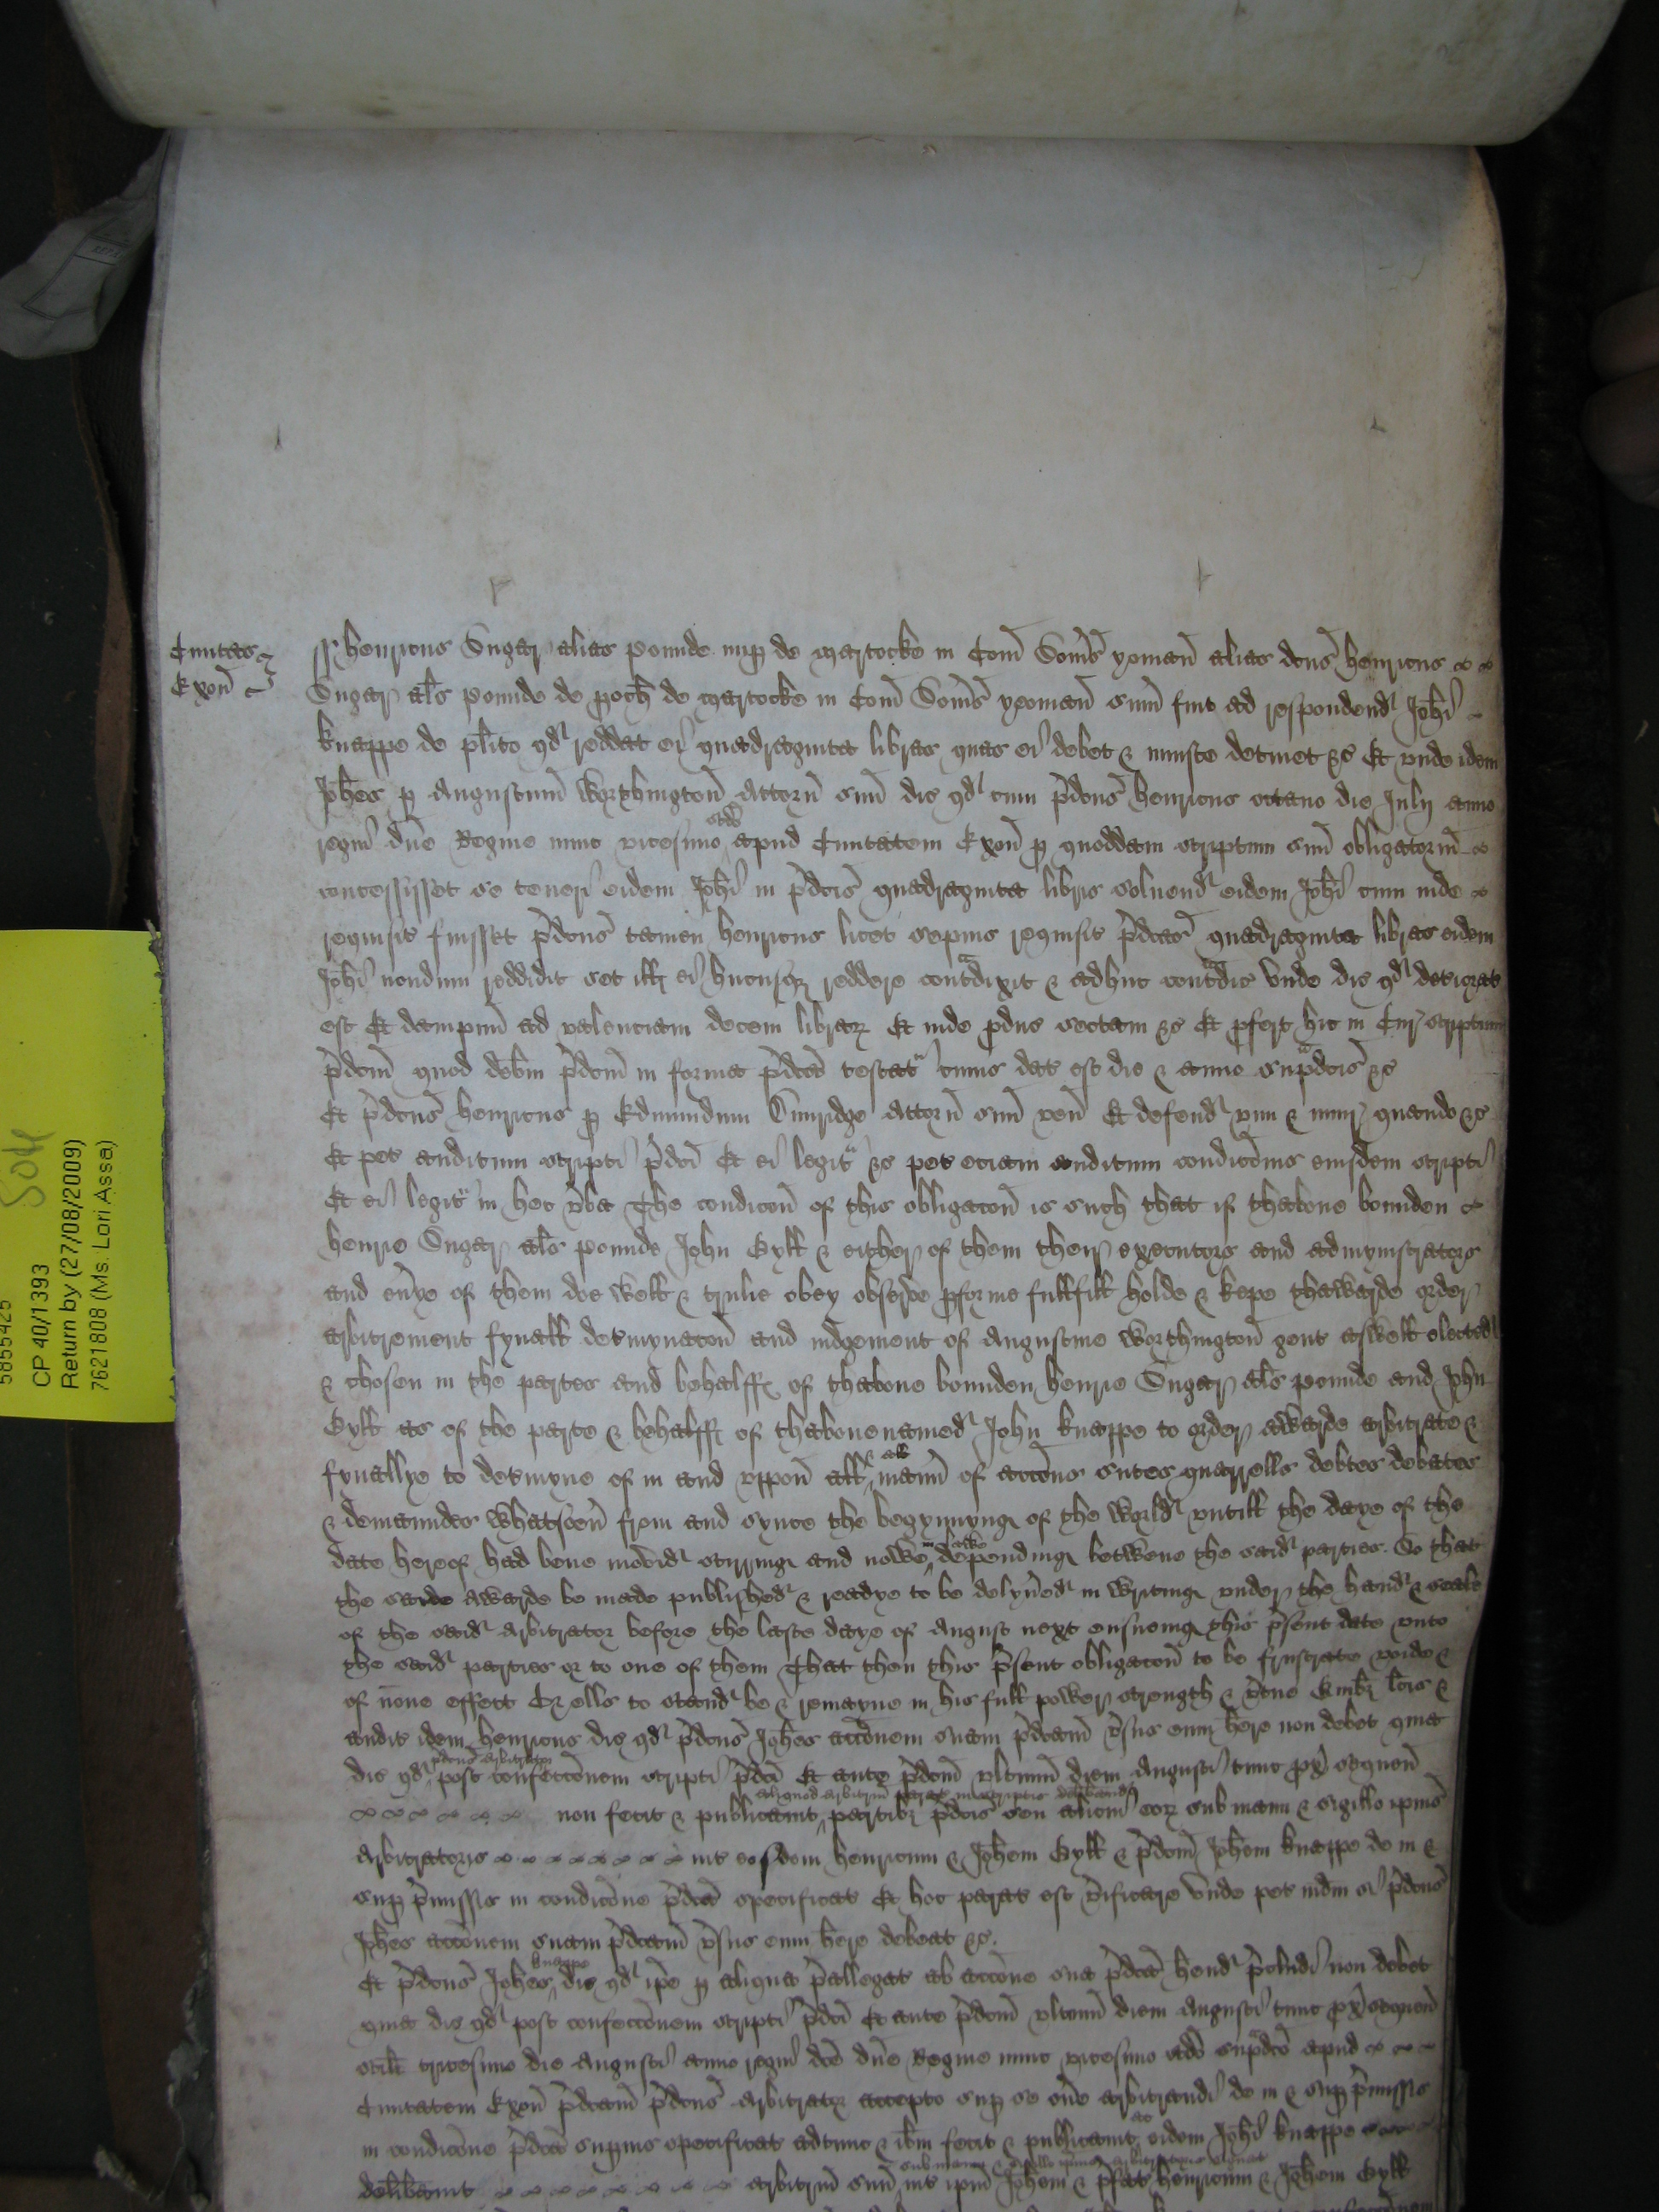 5855425
CP 40/1393
Return by (27/08/2009)
7621808 (Ms. Lori Assa)
Ciuitas
Exon̄
ss henricus Sugar alias pounde nup de martocke in Com̄ Som̄s yoman̄ alias dc̄us henricus
Sugar als pounde de poch̄ de martocke in Com̄ Som̄s yeoman̄ sum̄ fuit ad respondend Joh̄i
knappe de pl̄ito qd reddat ei quadraginta libras quas ei debet & iniuste detinet &c Et vnde idem
Joh̄es p Augustinū Worthington̄ Attorn̄ suū dic qd cum p̄dc̄us henricus octauo die Julij anno
regni dn̄e Regine nunc vicesimo octavo apud Ciuitatem Exon̄ p quoddam scriptum suū obligatoriū
concessisset se teneri eidem Joh̄i in p̄dc̄is quadraginta libris soluend eidem Joh̄i cum inde
requisit fuisset p̄dc̄us tamen henricus licet sepius requisit p̄dc̄as quadraginta libras eidem
Joh̄i nondum reddidit set ill ei hucusq reddere contradixit & adhuc contradic Vnde dic qd deteriorat
est Et dampnū ad valenciam decem librar Et inde pduc sectam &c Et pfert hic in Cur scriptum
p̄dc̄m quod debm̄ p̄dc̄m in forma p̄dc̄a testat cuius dat est die & anno sup̄dc̄is &c
Et p̄dc̄us henricus p Edmundum attorn̄ suū ven̄ Et defend vim & iniur quando &c
Et pet auditum scripti p̄dc̄i Et ei legit &c pet etiam auditum condic̄onis eiusdem scripti
Et ei legit in hec v̄ba The condicon̄ of this obligacon̄ is such that if thaboue bounden
henrie Sugar als pounde John Gyll & either of them their executors and admynistrators
and eūye of them doe well & trulie obey obserue pforme fullfill holde & kepe thawarde order
arbitrement fynall det̄mynacon̄ and iudgement of Augustine Worthington̄ gent aswell elected
& chosen in the partes and behalff of thaboue bounden henrie Sugar als pounde and John
Gyll as of the parte & behalff of thabouenamed John knappe to order awarde arbitrate &
fynallye to det̄myne of in and vppon̄ all & all man̄ of acc̄ons sutes quarrells debtes debates
& demaundes whatsoeū from and synce the begynnyng of the world vntill the daye of the
date hereof had bene moved stirring and nowe depending betwene the said parties. So that
the saide awarde be made published & readye to be delyūed in writing vnder the hand & seale
of the said Arbitrator before the laste daye of August next ensueing this p̄sent date vnto
the said parties or to one of them That then this p̄sent obligacon̄ to be frustrate voide &
of none effect Or ells to stand be & remayne in his full power strength & v̄tue Quibz lc̄is &
auditis idem henricus dic qd p̄dc̄us Joh̄es acc̄onem suam p̄dc̄am v̄sus eum h̄ere non debet quia
dic qd p̄dc̄us arbitrator post confecc̄onem scripti p̄dc̄i Et ante p̄dc̄m vltimū diem Augusti tunc px̄ sequen̄
non fecit & publicauit aliquod arbitriū parat in scriptis delib̄and partibz p̄dc̄is seu alicui eorz sub manu & sigillo ip̄ius
Arbitratoris int̄ eosdem henricum & Joh̄em Gyll & p̄dc̄m Joh̄em knappe de in &
sup p̄missis in condic̄one p̄dc̄a specificat Et hoc parat est v̄ificare Vnde pet iudm̄ si p̄dc̄us
Joh̄es acc̄onem suam p̄dc̄am v̄sus eum h̄ere debeat &c.
Et p̄dc̄us Joh̄es knappe dic qd ip̄e p aliqua p̄allegat ab acc̄one sua p̄dc̄a h̄end p̄cludi non debet
quia dic qd post confecc̄onem scripti p̄dc̄i Et ante p̄dc̄m vltimū diem Augusti tunc px̄ sequen̄
scil̄t tricesimo die Augusti anno regni dc̄e dn̄e Regine nunc vicesimo octavo sup̄dc̄o apud
Ciuitatem Exon̄ p̄dc̄am p̄dc̄us Arbitrator accepto sup se on̄e arbitrandi de in & sup p̄missis
in condic̄one p̄dc̄a supius specificat adtunc & ib̄m fecit & publicauit ac eidem Joh̄i knappe
delib̄auit arbitriū suū sub manu & sigillo ip̄ius arbitratoris int̄ ip̄m Joh̄em & p̄fat henricum & Joh̄em Gyll